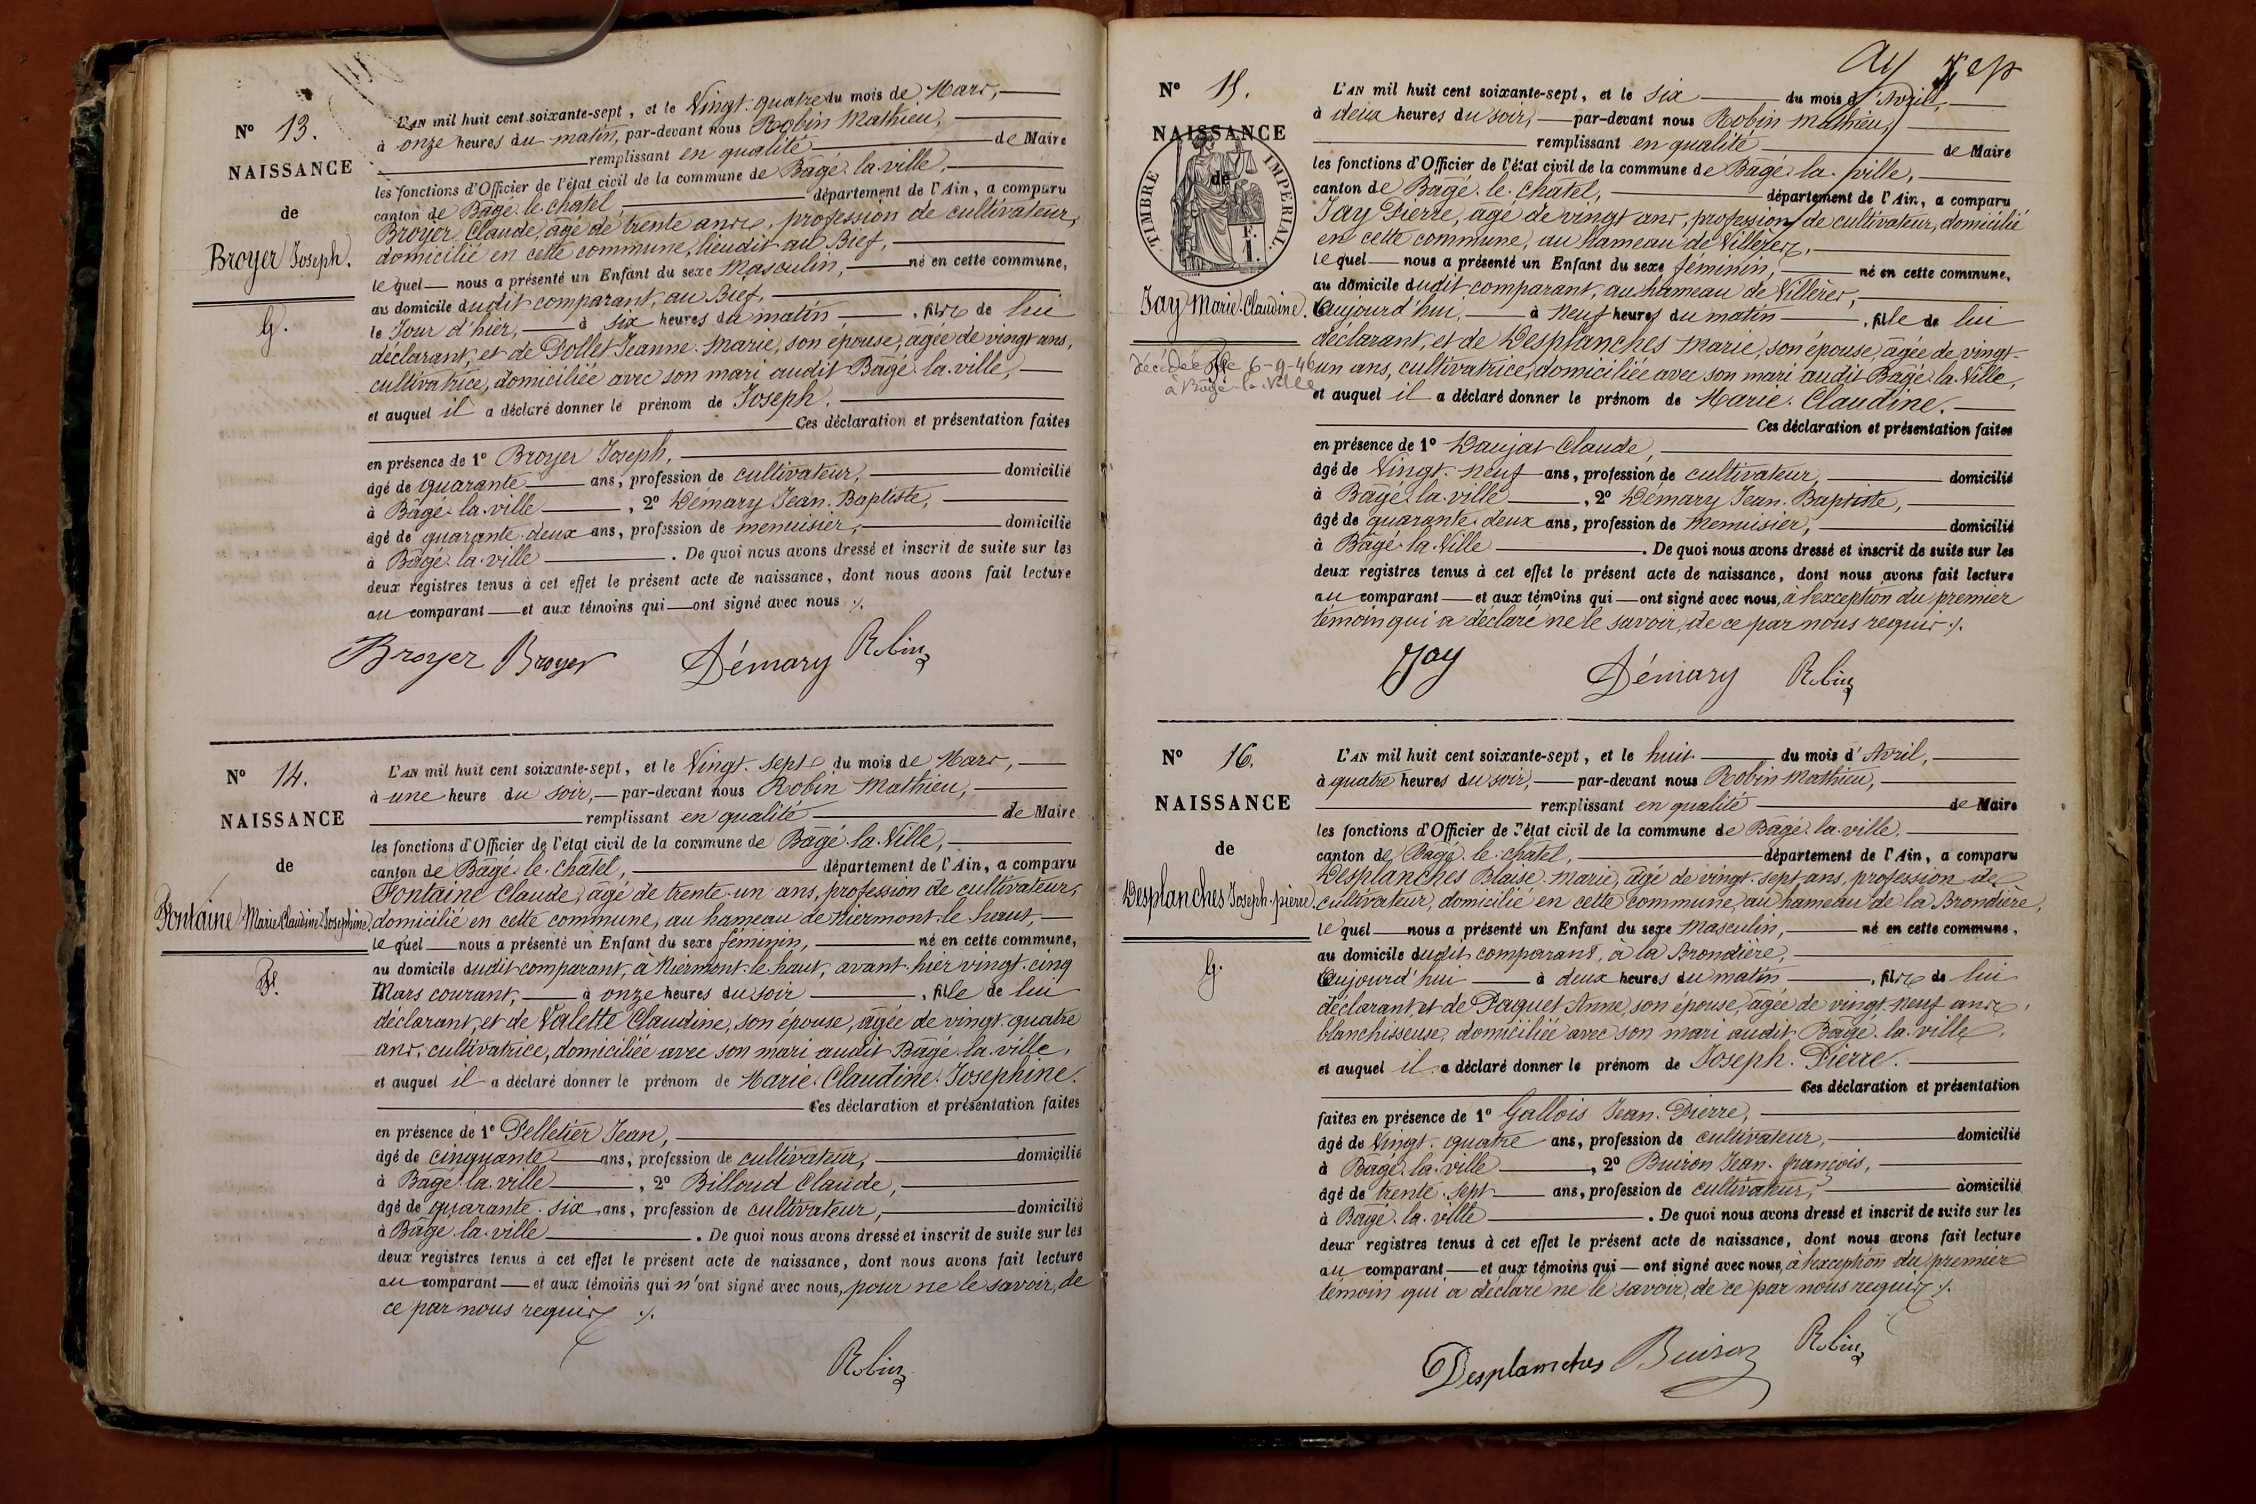 N° 13.
NAISSANCE
de
Broyer Joseph.
G.
L'AN mil huit cent soixante-sept, et le Vingt-quatre du mois de Mars,
à onze heures du matin, par-devant nous Robin Mathieu,
remplissant en qualité de Maire
les fonctions d'Officier de l'état civil de la commune de Bâgé-la-ville,
canton de Bâgé-le-châtel, département de l'Ain, a comparu
Broyer Claude, âgé de trente ans, profession de cultivateur,
domicilié en cette commune, lieudit au Bief,
lequel nous a présenté un Enfant du sexe Masculin, né en cette commune,
au domicile dudit comparant, au Bief,
le Jour d'hier, à six heures du matin, fils de lui
déclarant, et de Pollet Jeanne-Marie, son épouse, âgée de vingt ans,
cultivatrice, domiciliée avec son mari audit Bâgé-la-ville,
et auquel il a déclaré donner le prénom de Joseph.
Ces déclaration et présentation faites
en présence de 1° Broyer Joseph,
âgé de quarante ans, profession de cultivateur, domicilié
à Bâgé-la-ville, 2° Démary Jean-Baptiste,
âgé de quarante-deux ans, profession de menuisier, domicilié
à Bâgé-la-ville. De quoi nous avons dressé et inscrit de suite sur les
deux registres tenus à cet effet le présent acte de naissance, dont nous avons fait lecture
au comparant et aux témoins qui ont signé avec nous ./.
Broyer Broyer Démary Robin
N° 14.
NAISSANCE
de
Fontaine Marie-Claudine-Josephine.
F.
L'AN mil huit cent soixante-sept, et le Vingt-sept du mois de Mars,
à une heure du soir, par-devant nous Robin Mathieu,
remplissant en qualité de Maire
les fonctions d'Officier de l'état civil de la commune de Bâgé-la-Ville,
canton de Bâgé-le-châtel, département de l'Ain, a comparu
Fontaine Claude, âgé de trente-un ans, profession de cultivateur,
domicilié en cette commune, au hameau de Niermont-le-haut,
lequel nous a présenté un Enfant du sexe féminin, né en cette commune,
au domicile dudit comparant, à Niermont-le-haut, avant-hier vingt-cinq
Mars courant, à onze heures du soir, fille de lui
déclarant, et de Valette Claudine, son épouse, âgée de vingt-quatre
ans, cultivatrice, domiciliée avec son mari audit Bâgé-la-ville,
et auquel il a déclaré donner le prénom de Marie-Claudine-Josephine.
Ces déclaration et présentation faites
en présence de 1° Pelletier Jean,
âgé de cinquante ans, profession de cultivateur, domicilié
à Bâgé-la-ville, 2° Billoud Claude,
âgé de quarante-six ans, profession de cultivateur, domicilié
à Bâgé-la-ville. De quoi nous avons dressé et inscrit de suite sur les
deux registres tenus à cet effet le présent acte de naissance, dont nous avons fait lecture
au comparant et aux témoins qui n'ont signé avec nous, pour ne le savoir, de
ce par nous requis ./.
Robin
N° 15.
NAISSANCE
de
TIMBRE IMPERIAL.
F.
1.
Jay Marie-Claudine.
Fe
décédée le 6-9-46
à Bâgé-la-Ville
L'AN mil huit cent soixante-sept, et le six du mois d'Avril,
à deux heures du soir, par-devant nous Robin Mathieu,
remplissant en qualité de Maire
les fonctions d'Officier de l'état civil de la commune de Bâgé-la-ville,
canton de Bâgé-le-châtel, département de l'Ain, a comparu
Jay Pierre, âgé de vingt ans, profession de cultivateur, domicilié
en cette commune, au hameau de Villères,
lequel nous a présenté un Enfant du sexe féminin, né en cette commune,
au domicile dudit comparant, au hameau de Villères,
aujourd'hui, à Neuf heures du matin, fille de lui
déclarant, et de Desplanches Marie, son épouse, âgée de vingt-
un ans, cultivatrice, domiciliée avec son mari audit Bâgé-la-Ville,
et auquel il a déclaré donner le prénom de Marie-Claudine.
Ces déclaration et présentation faites
en présence de 1° Daujat Claude,
âgé de Vingt-neuf ans, profession de cultivateur, domicilié
à Bâgé-la-ville, 2° Démary Jean-Baptiste,
âgé de quarante-deux ans, profession de menuisier, domicilié
à Bâgé-la-Ville. De quoi nous avons dressé et inscrit de suite sur les
deux registres tenus à cet effet le présent acte de naissance, dont nous avons fait lecture
au comparant et aux témoins qui ont signé avec nous, à l'exception du premier
témoin qui a déclaré ne le savoir, de ce par nous requis ./.
Jay Démary Robin
N° 16.
NAISSANCE
de
Desplanches Joseph-pierre.
G.
L'AN mil huit cent soixante-sept, et le huit du mois d'Avril,
à quatre heures du soir, par-devant nous Robin Mathieu,
remplissant en qualité de Maire
les fonctions d'Officier de l'état civil de la commune de Bâgé-la-ville,
canton de Bâgé-le-châtel, département de l'Ain, a comparu
Desplanches Blaise-Marie, âgé de vingt-sept ans, profession de
cultivateur, domicilié en cette commune, au hameau de la Brondière,
lequel nous a présenté un Enfant du sexe Masculin, né en cette commune,
au domicile dudit comparant, à la Brondière,
aujourd'hui à deux heures du matin, fils de lui
déclarant, et de Paquet Anne, son épouse, âgée de vingt-neuf ans,
blanchisseuse, domiciliée avec son mari audit Bâgé-la-ville,
et auquel il a déclaré donner le prénom de Joseph-Pierre.
Ces déclaration et présentation
faites en présence de 1° Gallois Jean-Pierre,
âgé de Vingt-quatre ans, profession de cultivateur, domicilié
à Bâgé-la-ville, 2° Buiron Jean-françois,
âgé de trente-sept ans, profession de cultivateur, domicilié
à Bâgé-la-ville. De quoi nous avons dressé et inscrit de suite sur les
deux registres tenus à cet effet le présent acte de naissance, dont nous avons fait lecture
au comparant et aux témoins qui ont signé avec nous, à l'exception du premier
témoin qui a déclaré ne le savoir, de ce par nous requis ./.
Desplanches Buiron Robin